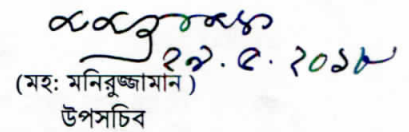 ২৯.৫.২০১৮
(মহ: মনিরুজ্জামান)
উপসচিব